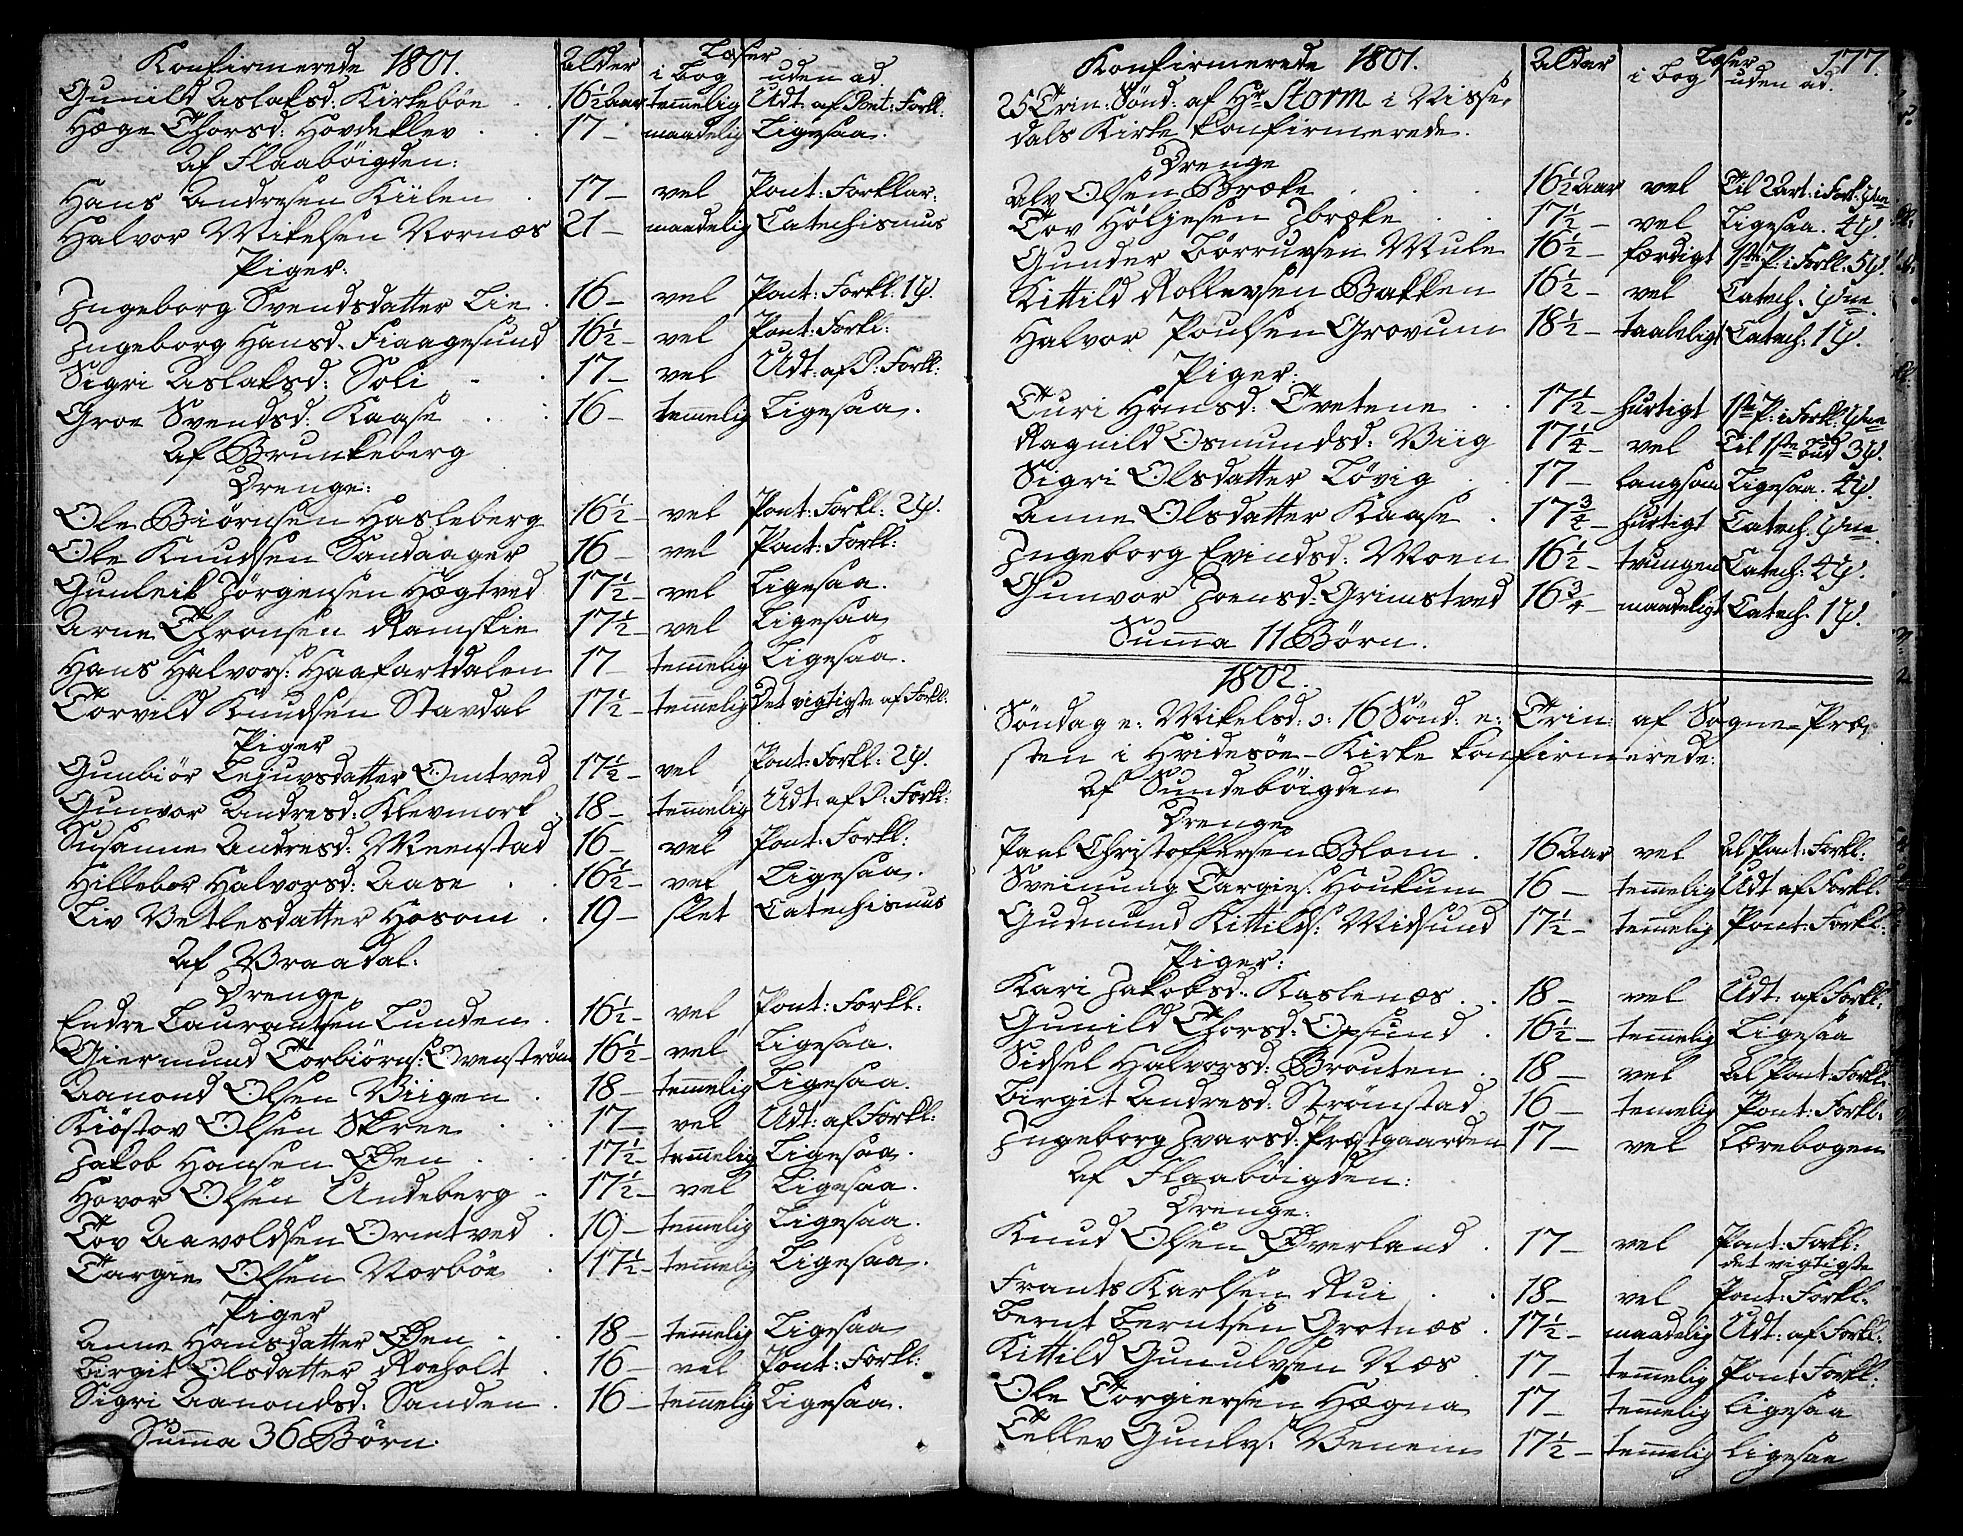 Konfirmerede 1801. Alder Læser
i bog uden ad
Gunild Aslaksd: Kirkebøe 16½ Aar temmelig Udt. af Pont: Forkl:
Hæge Thorsd: Hovdeklev 17 – maadelig Ligesaa.
Af Flaabøigden:
Hans Andresen Kiilen 17 – vel Pont: Forklar:
Halvor Mikelsen Nornæs 21 – maadelig Catechismus
Piger:
Ingeborg Svendsdatter Lie 16 – vel Pont: Forkl. 1 ψ.
Ingeborg Hansd. Fiaagesund 16½ – vel Pont: Forkl:
Sigri Aslaksd: Soli 17 – vel Udt: af P: Forkl:
Groe Svendsd: Kaase 16 – temelig Ligesaa.
Af Brunkeberg
Drenge:
Ole Biørnsen Hasleberg 16½ – vel Pont: Forkl: 2 ψ.
Ole Knudsen Sandaager 16 – vel Pont: Forkl:
Gunleik Jørgensen Hægtved 17½ – vel Ligesaa.
Arne Thronsen Ramskie 17½ – vel Ligesaa
Hans Halvors: Haafartdalen 17 temmelig Ligesaa.
Torveld Knudsen Stavdal 17½ – temmelig Det vigtigste af Forkl:
Piger
Gunbiør Lejuvsdatter Omtved 17½ – vel Pont: Forkl: 2 ψ.
Gunvor Andresd: Klevmork 18 – temmelig Udt: af P: Forkl:
Susanne Andresd: Meenstad 16 – vel Pont: Forkl:
Hillebor Halvorsd: Aase 16½ – vel Ligesaa.
Liv Vetlesdatter Hosom 19 – slet Catechismus
Af Vraadal.
Drenge
Endre Laurantsen Lunden 16½ – vel Pont: Forkl:
Giermund Torbiørns: Ovenstrøm 16½ – vel Ligesaa.
Aanond Olsen Viigen 18 – temmelig Ligesaa.
Kiøstov Olsen Skree 17 – vel Udt: af Forkl:
Jakob Hansen Øen 17½ – temmelig Ligesaa.
Hovor Olsen Undeberg 17½ – vel Ligesaa.
Tov Aavoldsen Ormtved 19 – temmelig Ligesaa.
Targie Olsen Norbøe 17½ – temmelig Ligesaa.
Piger
Anne Hansdatter Øen 18 – temmelig Ligesaa
Birgit Olsdatter Roeholt 16 – vel Pont: Forkl:
Sigri Aanondsd: Sanden 16 – temmelig Ligesaa.
Summa 36 Børn.
Konfirmerede 1801. Alder Læser 177.
i bog uden ad.
25 Trin: Sønd: af Hr Storm i Nisse-
dals Kirke konfirmerede.
Drenge
Alv Olsen Bræke 16½ Aar vel Til 2 Art: i Fork. ψne
Tov Høljesen Ibræke 17½ – vel Ligesaa. 4 ψ.
Gunder Børruvsen Mule 16½ – færdigt 1ste P: i Forkl: 5 ψ.
Kittild Rollevsen Bakken 16½ – vel Catech. ψne.
Halvor Poulsen Grovum 18½ – taalelig Catech: 1 ψ.
Piger:
Turi Hansd: Tvetene 17½ – hurtigt 1ste P: i Forkl: ψne
Ragnild Osmundsd: Viig 17¼ – vel Til 1ste bud 3 ψ.
Sigri Olsdatter Løvig 17 – langsom Ligesaa. 4 ψ.
Anne Olsdatter Kaase 17¾ – hurtigt Catech. ψne.
Ingeborg Evindsd: Moen 16½ – tvungen Catech: 4 ψ.
Gunvor Joensd: Grimstved 16¾ – maadeligt Catech. 1 ψ.
Summa 11 Børn.
1802.
Søndag e: Mikelsd: ɔ: 16 Sønd: e: Trin: af Sogne-Præ-
sten i Hvidesøe-Kirke konfirmerede:
af Sundebøigden
Drenge
Paal Christoffersen Blom 16 Aar vel Al Pont: Forkl:
Sveinung Targies: Houkum 16 – temmelig Udt af Forkl:
Gudmund Kittilds: Midsund 17½ – temmelig Pont: Forkl:
Piger:
Kari Jakobsd: Kaslenæs 18 – vel Udt: af Forkl:
Gunild Thorsd: Opsund 16½ – temmelig Ligesaa
Sidsel Halvorsd: Brouten 18 – vel Al Pont: Forkl:
Birgit Andresd: Strømstad 16 – temelig Pont: Forkl:
Ingeborg Ivarsd: Præstgaarden 17 – vel Lærebogen
af Flaabøigden:
Drenge:
Knud Olsen Øverland 17 – vel Pont: Forkl:
det vigtigste
Frants Karlsen Rui 18 – vel Pont: Forkl:
Bernt Berntsen Grotnæs 17½ – maadelig Udt: af Forkl:
Kittild Gunulvsen Næs 17 – temmelig Pont Forkl:
Ole Torgiersen Hægna 17 – temmelig Ligesaa
Tellev Gunlvs: Venem 17½ – temmelig Ligesaa